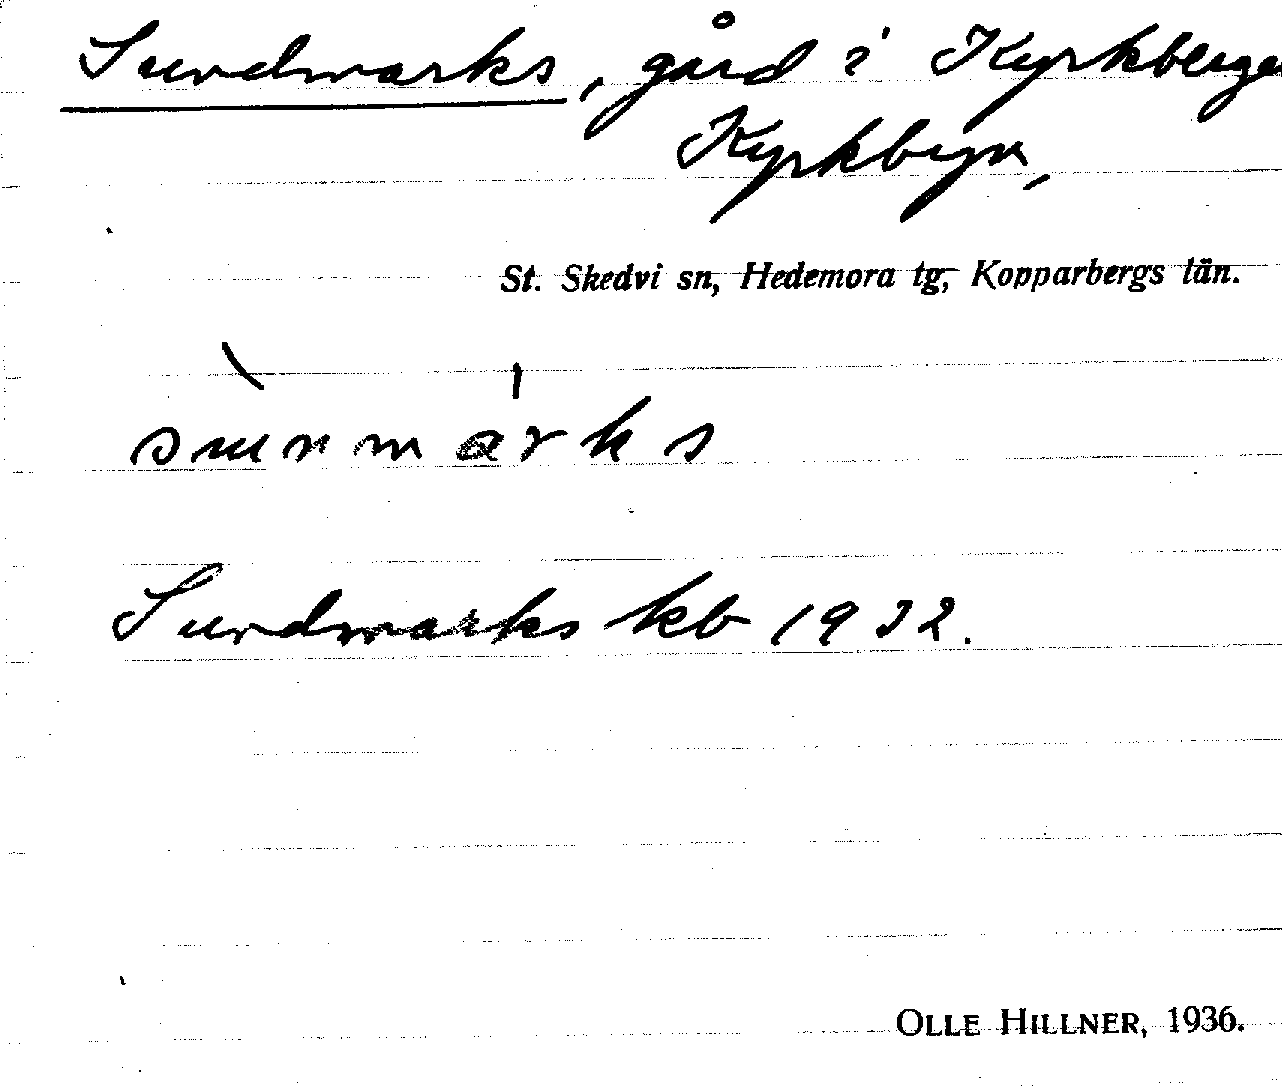 Sundmarks, gård i Kyrkberget
Kyrkbyn,
St. Skedvi sn, Hedemora tg, Kopparbergs län.
s̀unmárks
Sundmarks kb 1932.
OLLE HILLNER, 1936.